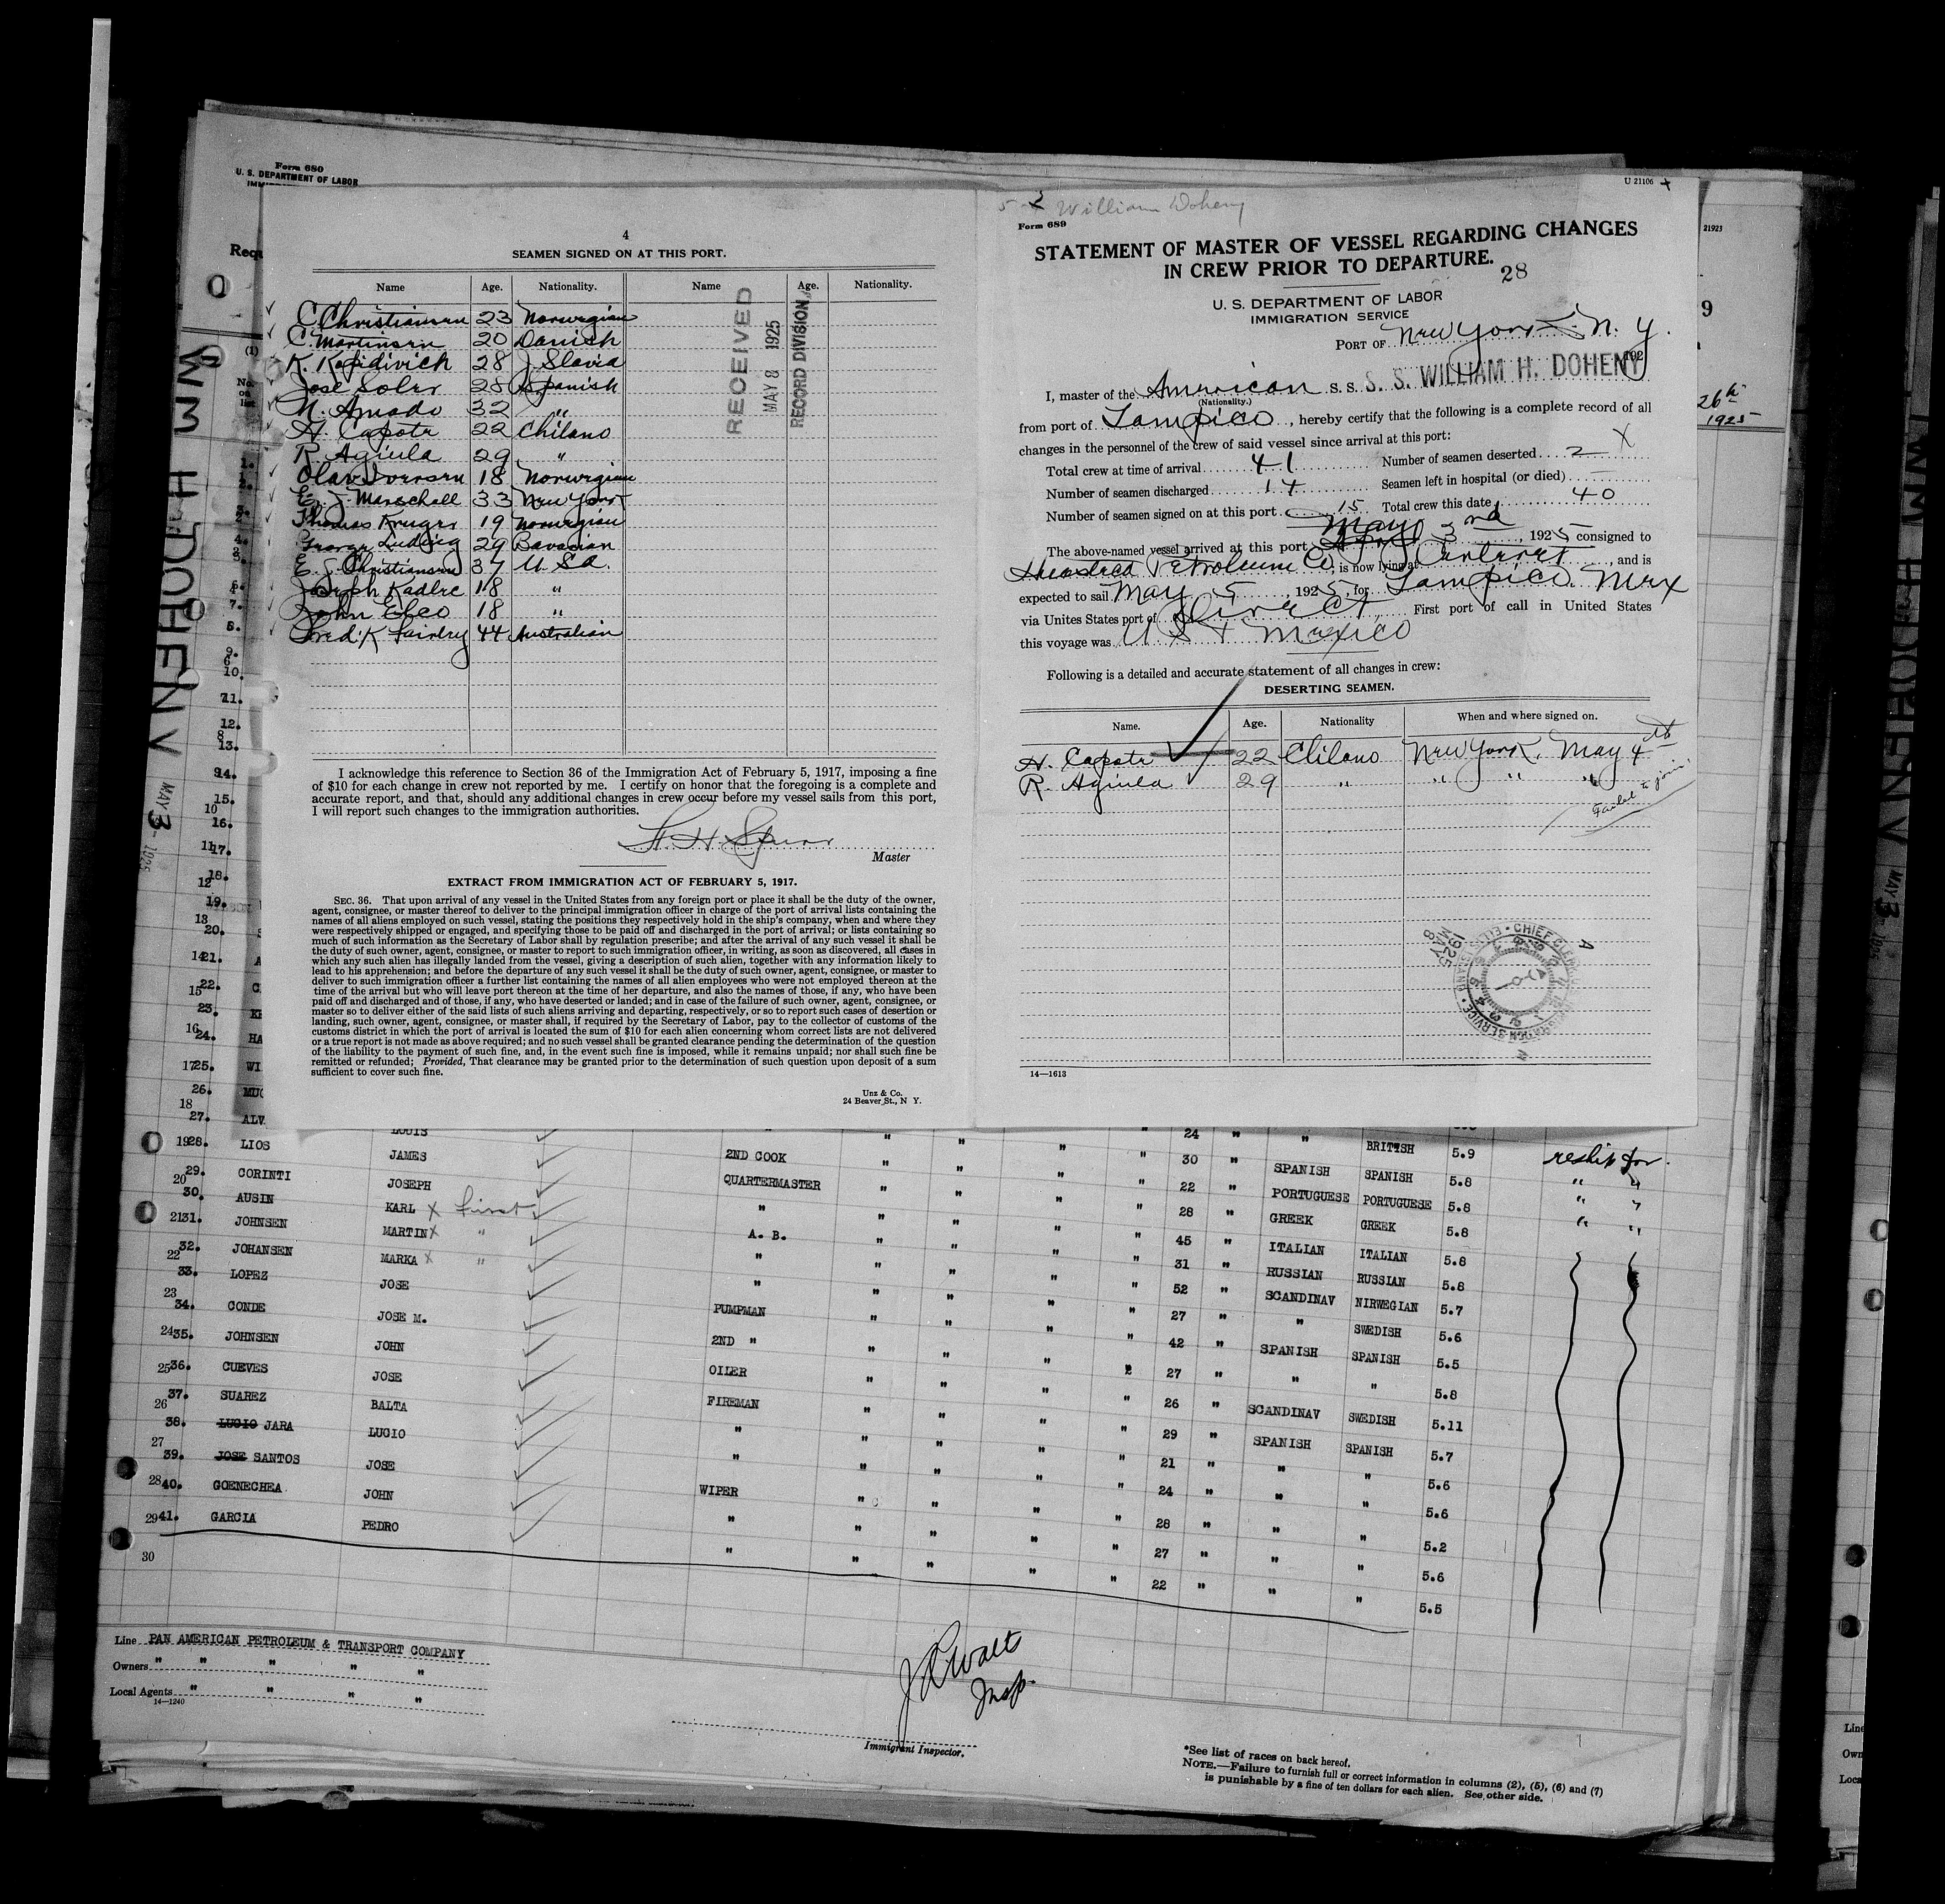 Form 680
U. S. DEPARTMENT OF LABOR
4
SEAMEN SIGNED ON AT THIS PORT.
Name Age. Nationality. Name Age. Nationality.
C. Christiansen 23 Norwegian
C. Martinsen 20 Danish
K. Kapidivich 28 J. Slavia
Jose Soler 28 Spanish
N. Amado 32 "
H. Capote 22 Chilano
R. Agiula 29 "
Olav Iversen 18 Norwegian
E. J. Marschall 33 New York
Thomas Kruger 19 Norwegian
George Ludwig 29 Bavarian
E. J. Christiansen 37 U. Sa.
Joseph Kadlec 18 "
John Elco 18 "
Fred.K Fairley 44 Australian
RECEIVED
MAY 8 1925
RECORD DIVISION
I acknowledge this reference to Section 36 of the Immigration Act of February 5, 1917, imposing a fine
of $10 for each change in crew not reported by me. I certify on honor that the foregoing is a complete and
accurate report, and that, should any additional changes in crew occur before my vessel sails from this port,
I will report such changes to the immigration authorities.
Master
EXTRACT FROM IMMIGRATION ACT OF FEBRUARY 5, 1917.
SEC. 36. That upon arrival of any vessel in the United States from any foreign port or place it shall be the duty of the owner,
agent, consignee, or master thereof to deliver to the principal immigration officer in charge of the port of arrival lists containing the
names of all aliens employed on such vessel, stating the positions they respectively hold in the ship's company, when and where they
were respectively shipped or engaged, and specifying those to be paid off and discharged in the port of arrival; or lists containing so
much of such information as the Secretary of Labor shall by regulation prescribe; and after the arrival of any such vessel it shall be
the duty of such owner, agent, consignee, or master to report to such immigration officer, in writing, as soon as discovered, all cases in
which any such alien has illegally landed from the vessel, giving a description of such alien, together with any information likely to
lead to his apprehension; and before the departure of any such vessel it shall be the duty of such owner, agent, consignee, or master to
deliver to such immigration officer a further list containing the names of all alien employees who were not employed thereon at the
time of the arrival but who will leave port thereon at the time of her departure, and also the names of those, if any, who have been
paid off and discharged and of those, if any, who have deserted or landed; and in case of the failure of such owner, agent, consignee, or
master so to deliver either of the said lists of such aliens arriving and departing, respectively, or so to report such cases of desertion or
landing, such owner, agent, consignee, or master shall, if required by the Secretary of Labor, pay to the collector of customs of the
customs district in which the port of arrival is located the sum of $10 for each alien concerning whom correct lists are not delivered
or a true report is not made as above required; and no such vessel shall be granted clearance pending the determination of the question
of the liability to the payment of such fine, and, in the event such fine is imposed, while it remains unpaid; nor shall such fine be
remitted or refunded; Provided, That clearance may be granted prior to the determination of such question upon deposit of a sum
sufficient to cover such fine.
Unz & Co.
24 Beaver St., N Y.
U 21106
William Doheny
Form 689
STATEMENT OF MASTER OF VESSEL REGARDING CHANGES
IN CREW PRIOR TO DEPARTURE.
28
U. S. DEPARTMENT OF LABOR
IMMIGRATION SERVICE
PORT OF New York N. Y.
192
I, master of the American S. S. S. S. WILLIAM H. DOHENY
(Nationality.)
from port of Tampico, hereby certify that the following is a complete record of all
changes in the personnel of the crew of said vessel since arrival at this port:
Total crew at time of arrival 41 Number of seamen deserted 2 X
Number of seamen discharged 14 Seamen left in hospital (or died) —
Number of seamen signed on at this port 15 Total crew this date 40
May 3rd
The above-named vessel arrived at this port 3, 1925 consigned to
Huasteca Petroleum Co, is now lying at Carteret, and is
expected to sail May 5, 1925, for Tampico Mex
via Unites States port of Direct First port of call in United States
this voyage was U S & Mexico
Following is a detailed and accurate statement of all changes in crew:
DESERTING SEAMEN.
Name. Age. Nationality When and where signed on.
H. Capote 22 Chilano New York, May 4th
R. Agiula 29 " " " "
Failed to join
MAY 8 1925
14—1613
21923
9
26th
1925
WM H DOHENY
MAY 3 1925
LOUIS 24 " "
28. LIOS JAMES 2ND COOK " " " " 30 " SPANISH BRITISH 5.9 reship for.
29. CORINTI JOSEPH QUARTERMASTER " " " " 22 " PORTUGUESE SPANISH 5.8 " "
30. AUSIN KARL X first " " " " " 28 " GREEK PORTUGUESE 5.8 " "
31. JOHNSEN MARTIN X " A. B. " " " " 45 " ITALIAN GREEK 5.8 " "
32. JOHANSEN MARKA X " " " " " " 31 " RUSSIAN ITALIAN 5.8
33. LOPEZ JOSE " " " " " 52 " SCANDINAV RUSSIAN 5.8
34. CONDE JOSE M. PUMPMAN " " " " 27 " " NIRWEGIAN 5.7
35. JOHNSEN JOHN 2ND " " " " " 42 " SPANISH SWEDISH 5.6
36. CUEVES JOSE OILER " " " 27 " " SPANISH 5.5
37. SUAREZ BALTA FIREMAN " " " " 26 " SCANDINAV " 5.8
38. LUCIO JARA LUCIO " " " " " 29 " SPANISH SWEDISH 5.11
39. JOSE SANTOS JOSE " " " " " 21 " " SPANISH 5.7
40. GOENECHEA JOHN WIPER " " " " 24 " " " 5.6
41. GARCIA PEDRO " " " " " 28 " " " 5.6
" " " " " 27 " " " 5.2
" " " 22 " " " 5.6
" 5.5
30
Line PAN AMERICAN PETROLEUM & TRANSPORT COMPANY
Owners " " " " "
Local Agents " " " "
14—1240
Insp.
Immigrant Inspector.
*See list of races on back hereof.
NOTE.—Failure to furnish full or correct information in columns (2), (5), (6) and (7)
is punishable by a fine of ten dollars for each alien. See other side.